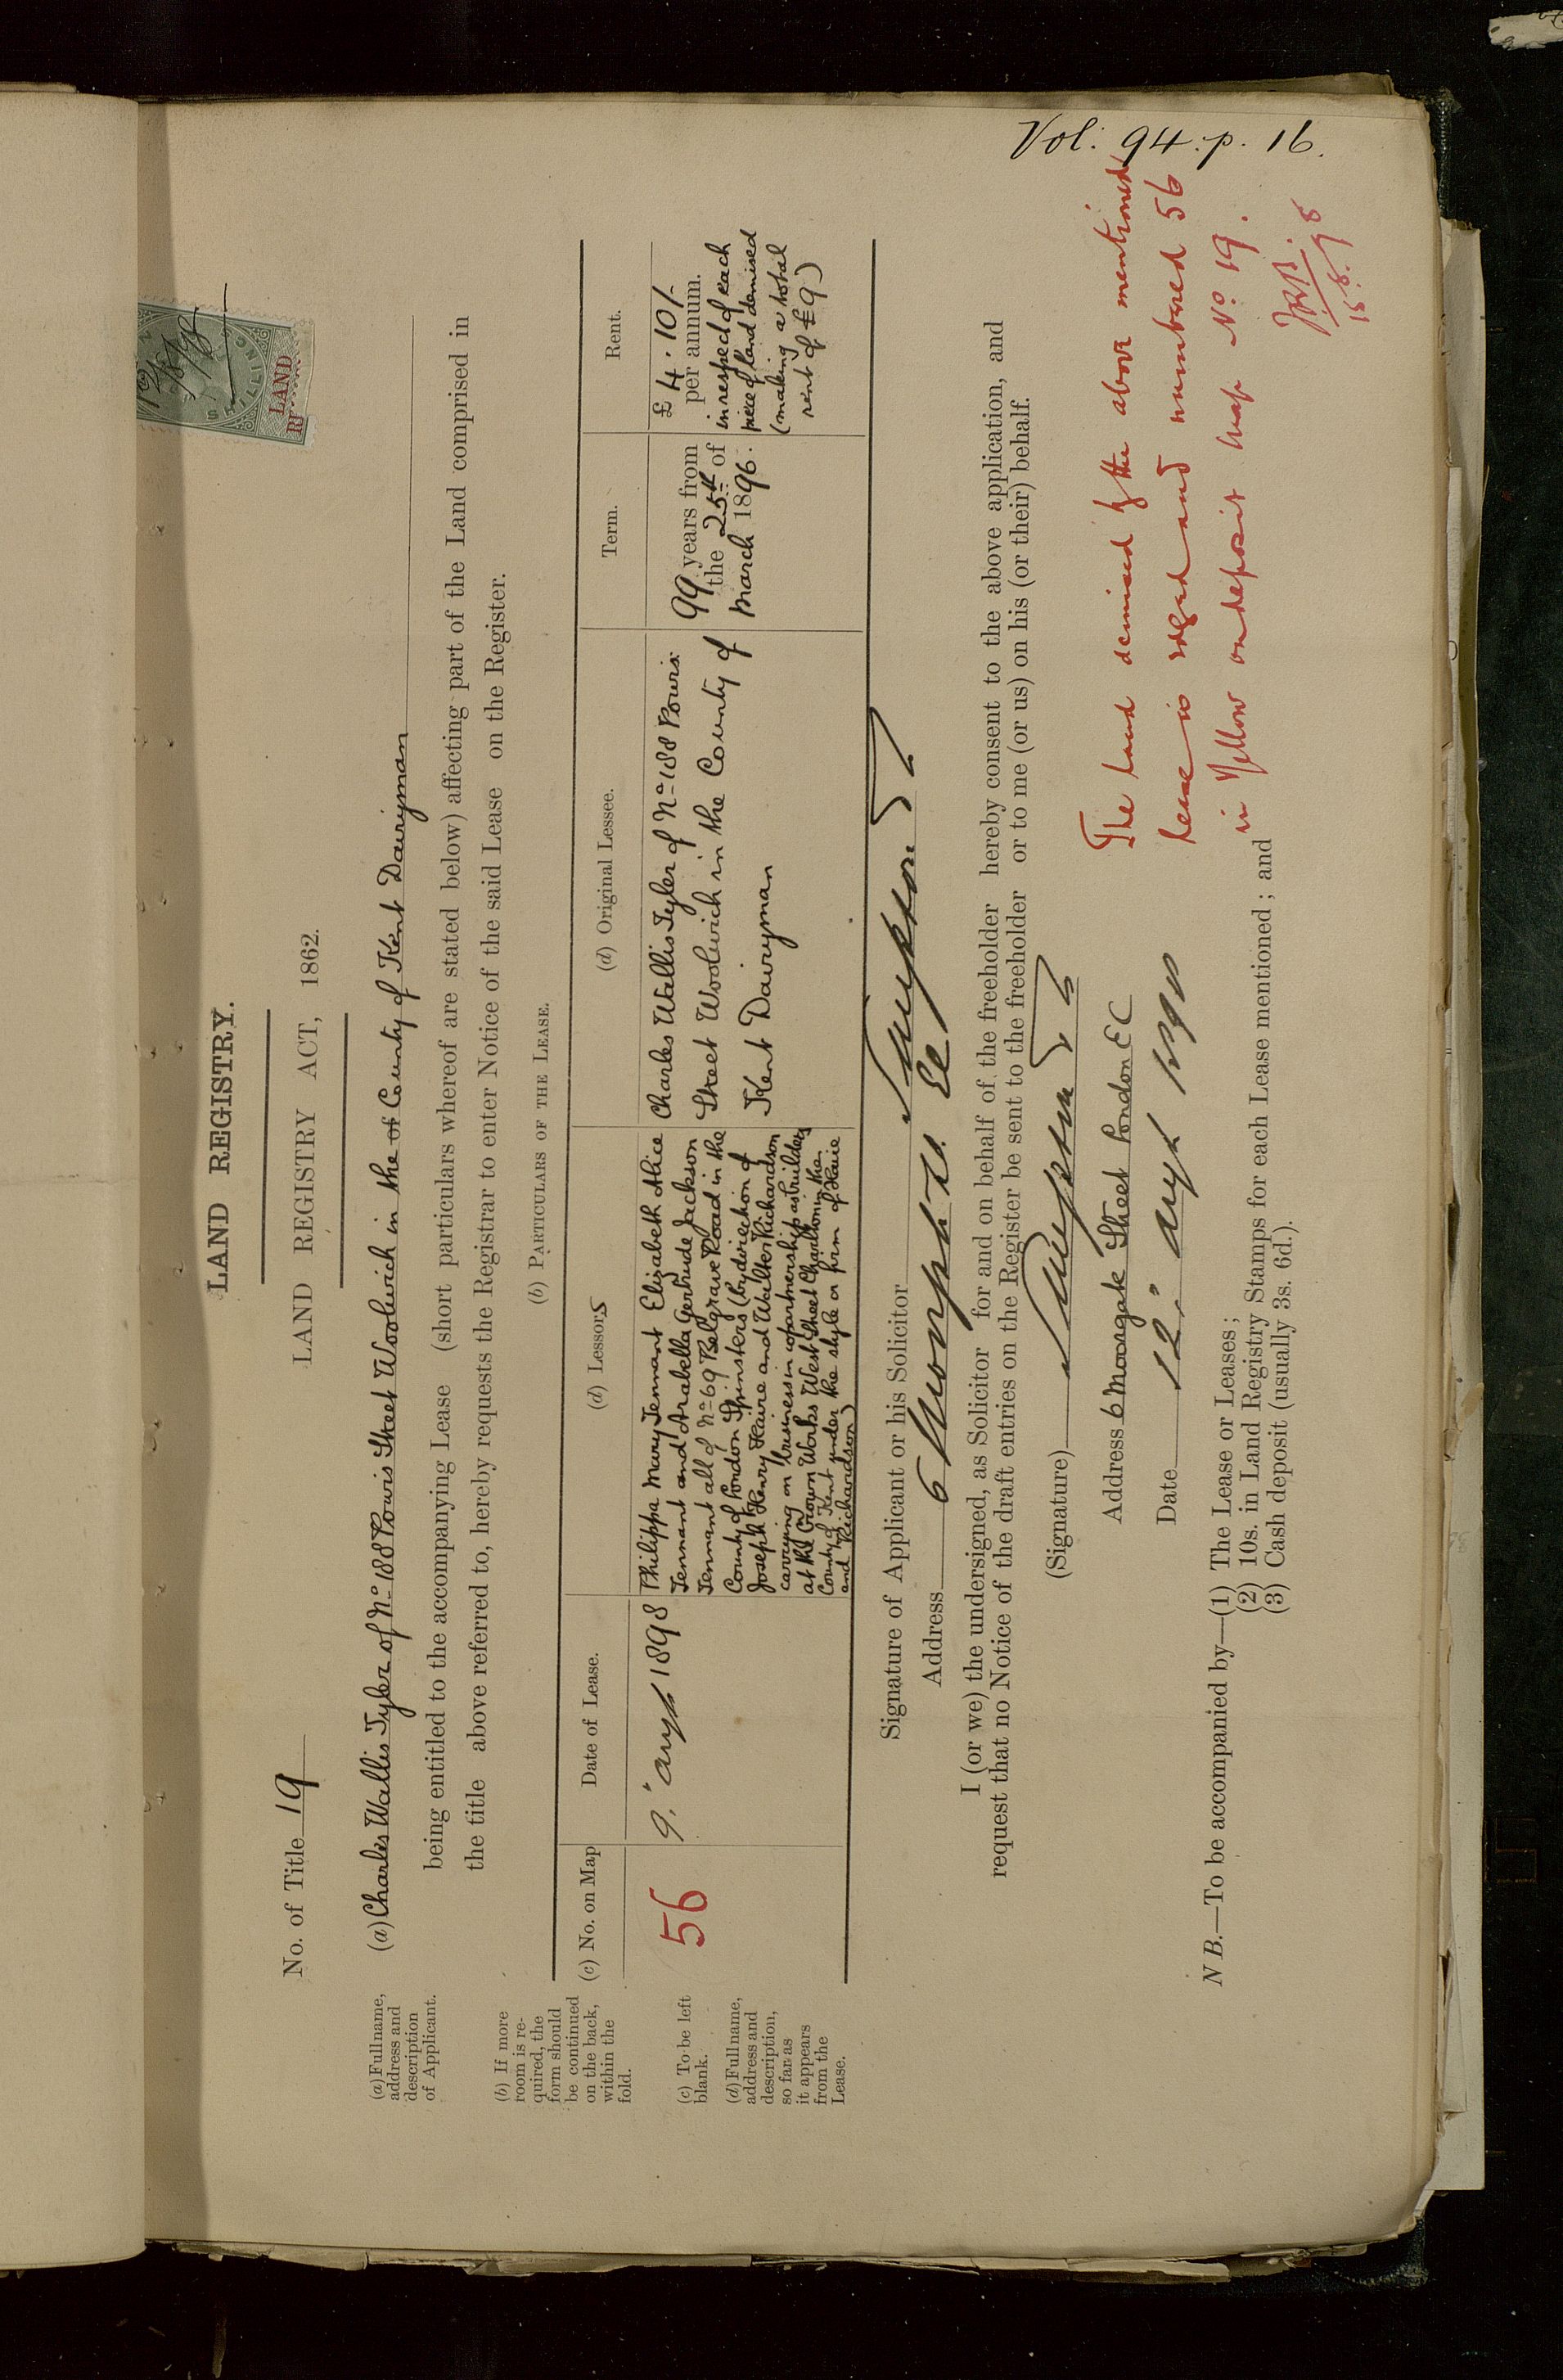 Vol: 94. p. 16.
LAND REGISTRY.
LAND REGISTRY ACT, 1862.
No. of Title 19
LAND
(a) Charles Wallis Tyler of No 188 Powis Street Woolwich in the of County of Kent Dairyman
being entitled to the accompanying Lease (short particulars whereof are stated below) affecting part of the Land comprised in
the title above referred to, hereby requests the Registrar to enter Notice of the said Lease on the Register.
(a) Full name,
address and
description
of Applicant.
(b) PARTICULARS OF THE LEASE.
(b) If more
room is re-
quired, the
form should
be continued
on the back,
within the
fold.
(c) To be left
blank.
(d) Full name,
address and
description,
so far as
it appears
from the
Lease.
(c) No. on Map
56
Date of Lease.
9." Augt 1898
(d) Lessors
Philippa Mary Tennant Elizabeth Alice
Tennant and Arabella Gertrude Jackson
Tennant all of No 69 Belgrave Road in the
County of London Spinsters (by direction of
Joseph Henry Kaire and Walter Richardson
carrying on business in copartnership as builders
at the Crown Works West Street Charlton in the
County of Kent under the style or firm of Kaire
and Richardson)
(d) Original Lessee.
Charles Wallis Tyler of No 188 Powis
Street Woolwich in the County of
Kent Dairyman
Term.
99 years from
the 25th of
March 1896.
Rent.
£ 4 . 10/-
per annum.
in respect of each
piece of land demised
(making a total
rent of £9)
Signature of Applicant or his Solicitor
Address 6 Moorgate St. EC
I (or we) the undersigned, as Solicitor for and on behalf of the freeholder hereby consent to the above application, and
request that no Notice of the draft entries on the Register be sent to the freeholder or to me (or us) on his (or their) behalf.
(Signature)
Address 6 Moorgate Street London EC
Date 12." Augt 1898
The land demised by the above mentioned
lease is edged and numbered 56
in Yellow on deposit map No 19.
15.8.98
N B.—To be accompanied by—(1) The Lease or Leases;
(2) 10s. in Land Registry Stamps for each Lease mentioned; and
(3) Cash deposit (usually 3s. 6d.).